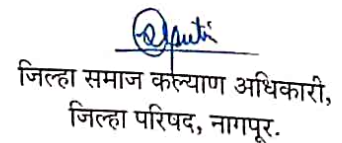 जिल्हा समाज कल्याण अधिकारी,
जिल्हा परिषद, नागपूर.